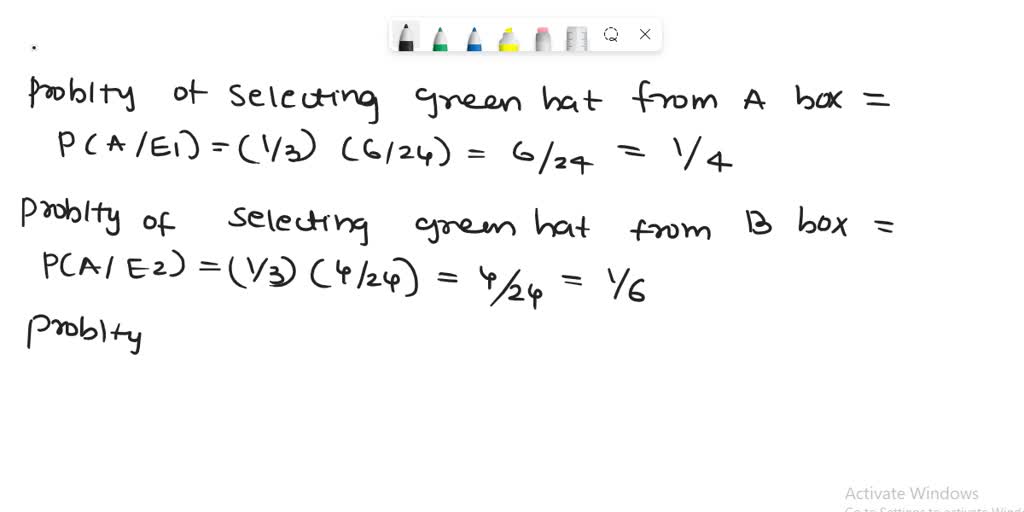 Problty of selecting green hat from A box =
P(A/E1) = (1/3) (6/24) = 6/24 = 1/4
Problty of selecting green hat from B box =
P(A/E2) = (1/3) (4/24) = 4/24 = 1/6
Problty
Activate Windows
Go to Settings to activate Windows